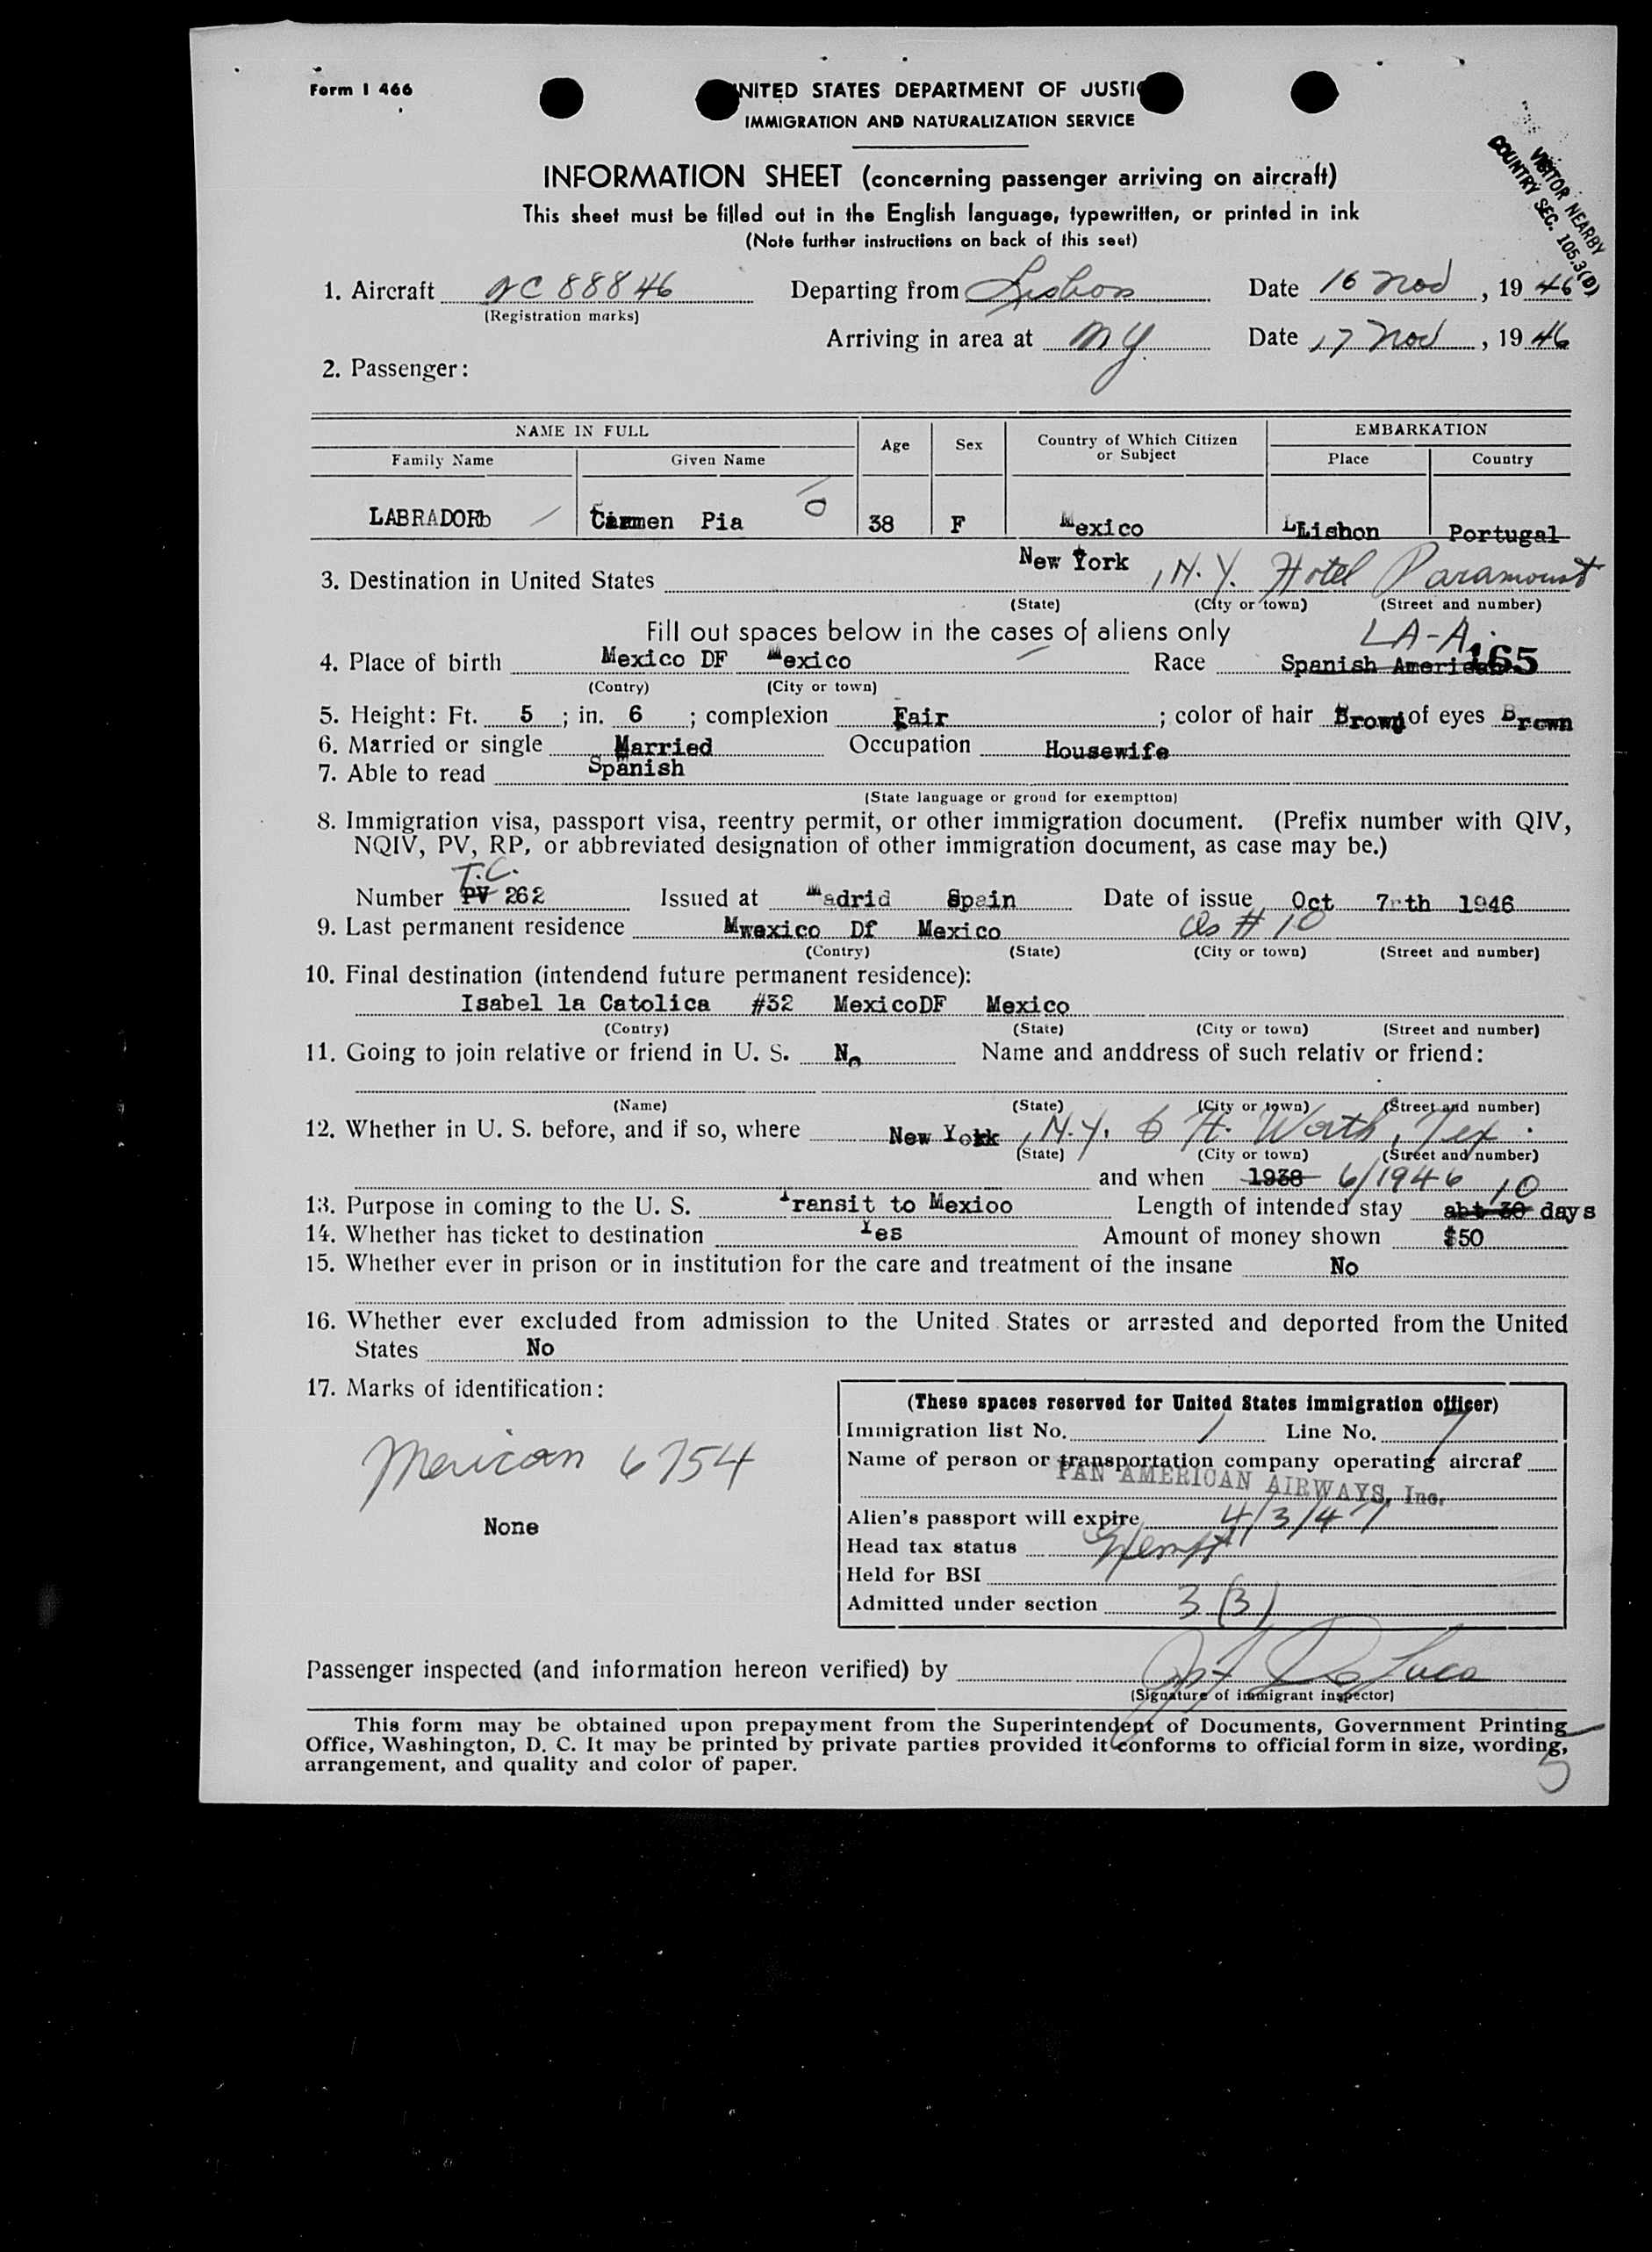 Form I 466
UNITED STATES DEPARTMENT OF JUSTIC
IMMIGRATION AND NATURALIZATION SERVICE
VISITOR NEARBY
COUNTRY SEC. 105.3(B)
INFORMATION SHEET (concerning passenger arriving on aircraft)
This sheet must be filled out in the English language, typewritten, or printed in ink
(Note further instructions on back of this seet)
1. Aircraft NC 88846 Departing from Lisbon Date 16 Nov, 1946
(Registration marks)
Arriving in area at NY. Date 17 Nov, 1946
2. Passenger:
NAME IN FULL Age Sex Country of Which Citizen or Subject EMBARKATION
Family Name Given Name Place Country
LABRADOR Carmen Pia 38 F Mexico LLisbon Portugal
3. Destination in United States New York, N.Y. Hotel Paramount
(State) (City or town) (Street and number)
Fill out spaces below in the cases of aliens only LA-A.
4. Place of birth Mexico DF Mexico Race Spanish American 165
(Contry) (City or town)
5. Height: Ft. 5; in. 6; complexion Fair; color of hair Brown; of eyes Brown
6. Married or single Married Occupation Housewife
7. Able to read Spanish
(State language or grond for exemptton)
8. Immigration visa, passport visa, reentry permit, or other immigration document. (Prefix number with QIV,
NQIV, PV, RP, or abbreviated designation of other immigration document, as case may be.)
T.C.
Number PV 262 Issued at Madrid Spain Date of issue Oct 7 th 1946
9. Last permanent residence Mwexico Df Mexico as # 10
(Contry) (State) (City or town) (Street and number)
10. Final destination (intendend future permanent residence):
Isabel la Catolica #32 MexicoDF Mexico
(Contry) (State) (City or town) (Street and number)
11. Going to join relative or friend in U. S. No Name and anddress of such relativ or friend:
(Name) (State) (City or town) (Street and number)
12. Whether in U. S. before, and if so, where New York, N.Y. & Ft. Worth, Tex.
(State) (City or town) (Street and number)
and when 1938 6/1946
13. Purpose in coming to the U. S. Transit to Mexico Length of intended stay abt 30 10 days
14. Whether has ticket to destination Yes Amount of money shown $50
15. Whether ever in prison or in institution for the care and treatment of the insane No
16. Whether ever excluded from admission to the United States or arrested and deported from the United
States No
17. Marks of identification:
Mexican 6754
None
(These spaces reserved for United States immigration officer)
Immigration list No. 1 Line No. 7
Name of person or transportation company operating aircraf
PAN AMERICAN AIRWAYS, Inc.
Alien's passport will expire 4/3/47
Head tax status Exempt
Held for BSI
Admitted under section 3(3)
Passenger inspected (and information hereon verified) by De Luca
(Signature of immigrant inspector)
This form may be obtained upon prepayment from the Superintendent of Documents, Government Printing
Office, Washington, D. C. It may be printed by private parties provided it conforms to official form in size, wording,
arrangement, and quality and color of paper.
5